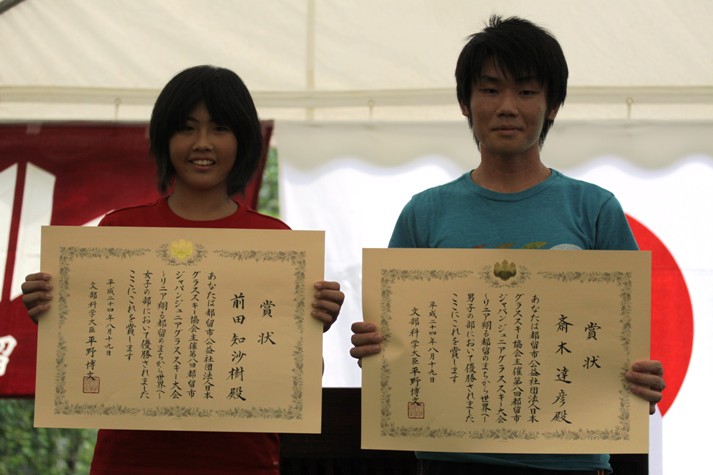 賞状
前田知沙樹殿
あなたは都留市公益社団法人日本
グラススキー協会主催第八回都留市
ジャパンジュニアグラススキー大会
～リニア翔る都留のまちから世界へ～
女子の部において優勝されました
ここにこれを賞します
平成二十四年八月十九日
文部科学大臣平野博文
賞状
斎木達彦殿
あなたは都留市公益社団法人日本
グラススキー協会主催第八回都留市
ジャパンジュニアグラススキー大会
～リニア翔る都留のまちから世界へ～
男子の部において優勝されました
ここにこれを賞します
平成二十四年八月十九日
文部科学大臣平野博文